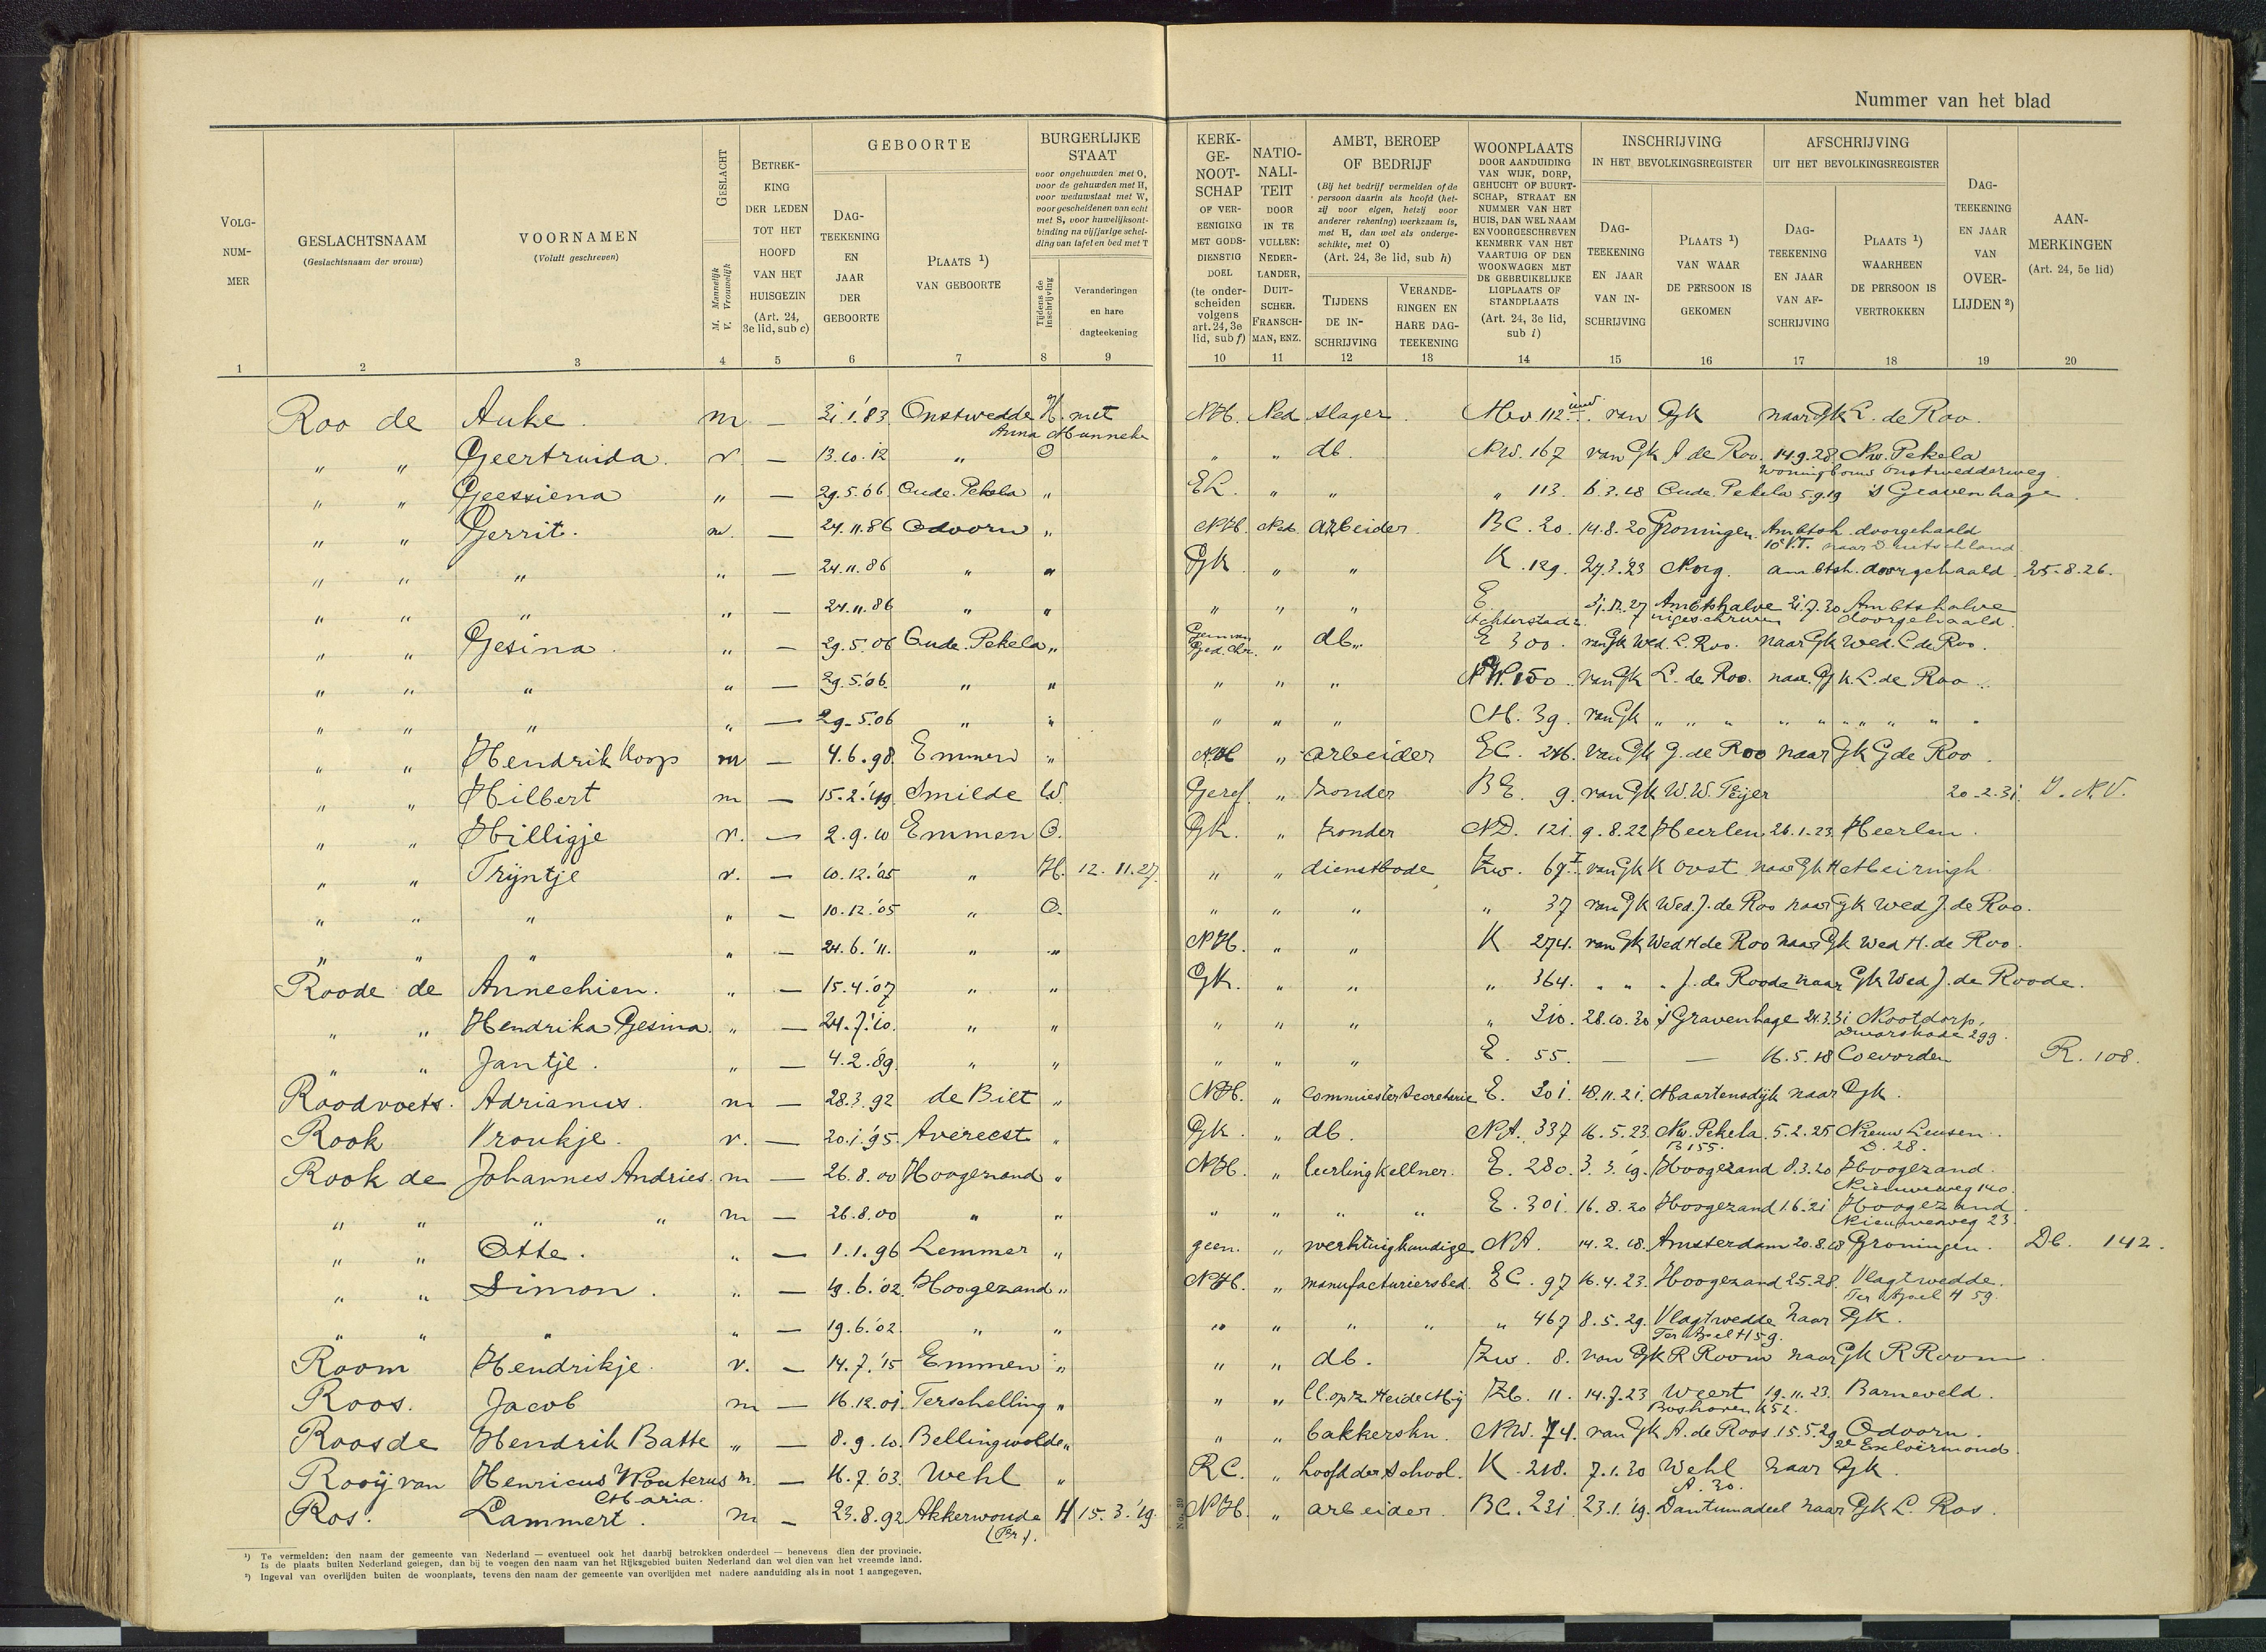 Nummer van het blad
VOLG-NUM-MER
GESLACHTSNAAM (Geslachtsnaam der vrouw)
VOORNAMEN (Voluit geschreven)
GESLACHT M. Mannelijk V. Vrouwelijk
BETREKKING DER LEDEN TOT HET HOOFD VAN HET HUISGEZIN (Art. 24, 3e lid, sub c)
GEBOORTE
DAG-TEEKENING EN JAAR DER GEBOORTE
PLAATS ¹) VAN GEBOORTE
BURGERLIJKE STAAT
voor ongehuwden met O, voor de gehuwden met H, voor weduwstaat met W, voor gescheidenen van echt met S, voor huwelijksontbinding na vijfjarige scheiding van tafel en bed met T
Tijdens de inschrijving
Veranderingen en hare dagteekening
KERK-GE-NOOT-SCHAP OF VEREENIGING MET GODSDIENSTIG DOEL (te onderscheiden volgens art. 24, 3e lid, sub f)
NATIO-NALI-TEIT DOOR IN TE VULLEN: NEDERLANDER, DUITSCHER, FRANSCHMAN, ENZ.
AMBT, BEROEP OF BEDRIJF
(Bij het bedrijf vermelden of de persoon daarin als hoofd (hetzij voor eigen, hetzij voor anderer rekening) werkzaam is, met H, dan wel als ondergeschikte, met O) (Art. 24, 3e lid, sub h)
TIJDENS DE IN-SCHRIJVING
VERANDERINGEN EN HARE DAG-TEEKENING
WOONPLAATS DOOR AANDUIDING VAN WIJK, DORP, GEHUCHT OF BUURTSCHAP, STRAAT EN NUMMER VAN HET HUIS, DAN WEL NAAM EN VOORGESCHREVEN KENMERK VAN HET VAARTUIG OF DEN WOONWAGEN MET DE GEBRUIKELIJKE LIGPLAATS OF STANDPLAATS (Art. 24, 3e lid, sub i)
INSCHRIJVING IN HET BEVOLKINGSREGISTER
DAG-TEEKENING EN JAAR VAN IN-SCHRIJVING
PLAATS ¹) VAN WAAR DE PERSOON IS GEKOMEN
AFSCHRIJVING UIT HET BEVOLKINGSREGISTER
DAG-TEEKENING EN JAAR VAN AF-SCHRIJVING
PLAATS ¹) WAARHEEN DE PERSOON IS VERTROKKEN
DAG-TEEKENING EN JAAR VAN OVER-LIJDEN ²)
AAN-MERKINGEN (Art. 24, 5e lid)
1 2 3 4 5 6 7 8 9 10 11 12 13 14 15 16 17 18 19 20
Roo de Auke. m — 31.1.'83 Onstwedde H. met Anna Hunneke NH. Ned slager. 112 van Gk naar Gk L. de Roo.
" " Geertruida. v. — 13.10.12 " O " " db. NW. 167 van Gk A de Roo. 14.9.28 Nw. Pekela
" " Geessiena " — 29.5.'06 Oude. Pekela " EL. " " " 113. 6.3.18 Oude. Pekela 5.9.19 's Gravenhage.
" " Gerrit. m. — 24.11.86 Odoorn " NH. Ned. arbeider. BC. 20. 14.8.20 Groningen. Ambtsh. doorgehaald naar Duitschland
" " " " — 24.11.86 " " Gk " " K. 129. 27.3.'23 Norg. ambtsh. doorgehaald 25-8.26.
" " " " — 24.11.86 " " " " " E. 31.12.27 Ambtshalve ingeschreven 31.7.30 Ambtshalve doorgehaald.
" " Gesina. " — 29.5.06 Oude. Pekela " " db. E 300. van Gk Wed. L. Roo. naar Gk Wed. L de Roo.
" " " " — 29.5.'06. " " " " " NW. 150. van Gk L. de Roo. naar Gk. L. de Roo.
" " " " — 29-5.06 " " " " " M. 39. van Gk " " " " " " " "
" " Hendrik Koops m — 4.6.98. Emmen " NH " arbeider EC. 246. van Gk G. de Roo naar Gk G de Roo.
" " Hilbert m — 15.2.'49. Smilde W. Geref. " zonder BE. 9. van Gk W. W. Teijer 20-2.31. V.N.V.
" " Hilligje v. — 2.9.10 Emmen O. Gk. " zonder ND. 121. 9.8.22 Heerlen 26.1.23. Heerlen.
" " Trijntje v. — 10.12.'05 " H. 12.11.27. " " dienstbode Zw. 69 I. van Gk K Oost naar Gk H Meiringh
" " " " — 10.12.'05 " O. " " " " 37 van Gk Wed. J. de Roo naar Gk Wed J. de Roo.
" " " " — 24.6.'11. " " NH. " " K 274. van Gk Wed H de Roo naar Gk Wed H. de Roo.
Roode de Annechien. " — 15.4.'07 " " Gk. " " " 364. " " " J. de Roode naar Gk Wed J. de Roode.
" " Hendrika Gesina. " — 24.7.'10. " " " " " " 310. 28.10.30 's Gravenhage 24.3.31 Nootdorp, Dwarskade 299.
" " Jantje. " — 4.2.'89. " " " " " E. 55. — — 16.5.18 Coevorden R. 108.
Roodvoets. Adrianus. m — 28.3.92 de Bilt " NH. " commies ter secretarie E. 301. 18.11.21. Maartensdijk naar Gk.
Rook Vroukje. v. — 20.1.'95. Avereest " Gk. " db. NA. 337 16.5.23. Nw. Pekela. B 155. 5.2.25 Nieuw Leusen. D. 28.
Rook de Johannes Andries. m — 26.8.00 Hoogezand " NH. " leerling kellner. E. 280. 3.3.'19. Hoogezand 8.3.20 Hoogezand. Nieuweweg 140.
" " " " m — 26.8.00 " " " " " " E. 301. 16.8.20 Hoogezand 1.6.21 Hoogezand. Nieuweweg 23.
" " Otte. " — 1.1.96 Lemmer " geen. " werktuigkundige NA. 14.2.18. Amsterdam 20.8.18 Groningen. Db. 142.
" " Simon. " — 19.6.'02. Hoogezand " NH. " manufacturiersbed. EC. 97 16.4.23. Hoogezand 2.5.28. Vlagtwedde. Ter Apel H 59.
" " " " — 19.6.'02. " " " " " " " 467 8.5.29. Vlagtwedde Ter Apel H 59. naar Gk.
Room Hendrikje. v. — 14.7.'15 Emmen " " " db. Zw. 8. van Gk R Room naar Gk R Room.
Roos. Jacob m — 16.12.01. Terschelling " " " Heide Mij Zb. 11. 14.7.23 Weert Boshoven K 52. 19.11.23. Barneveld.
Roos de Hendrik Batte " — 8.9.10. Bellingwolde " " " bakkerskn. NW. 74. van Gk A. de Roos. 15.5.29 Odoorn. 2e Exloërmond.
Rooij van Henricus Wouterus Maria. m. — 16.7.'03. Wehl " RC. " hoofd der school. K. 218. 7.1.30 Wehl A. 30. naar Gk.
Ros. Lammert. m — 23.8.92 Akkerwoude (Fr). H 15.3.'19. NH. " arbeider. BC. 231 23.1.'19. Dantumadeel naar Gk L. Ros.
No. 39
¹) Te vermelden: den naam der gemeente van Nederland — eventueel ook het daarbij betrokken onderdeel — benevens dien der provincie.
Is de plaats buiten Nederland gelegen, dan bij te voegen den naam van het Rijksgebied buiten Nederland dan wel dien van het vreemde land.
²) Ingeval van overlijden buiten de woonplaats, tevens den naam der gemeente van overlijden met nadere aanduiding als in noot 1 aangegeven.